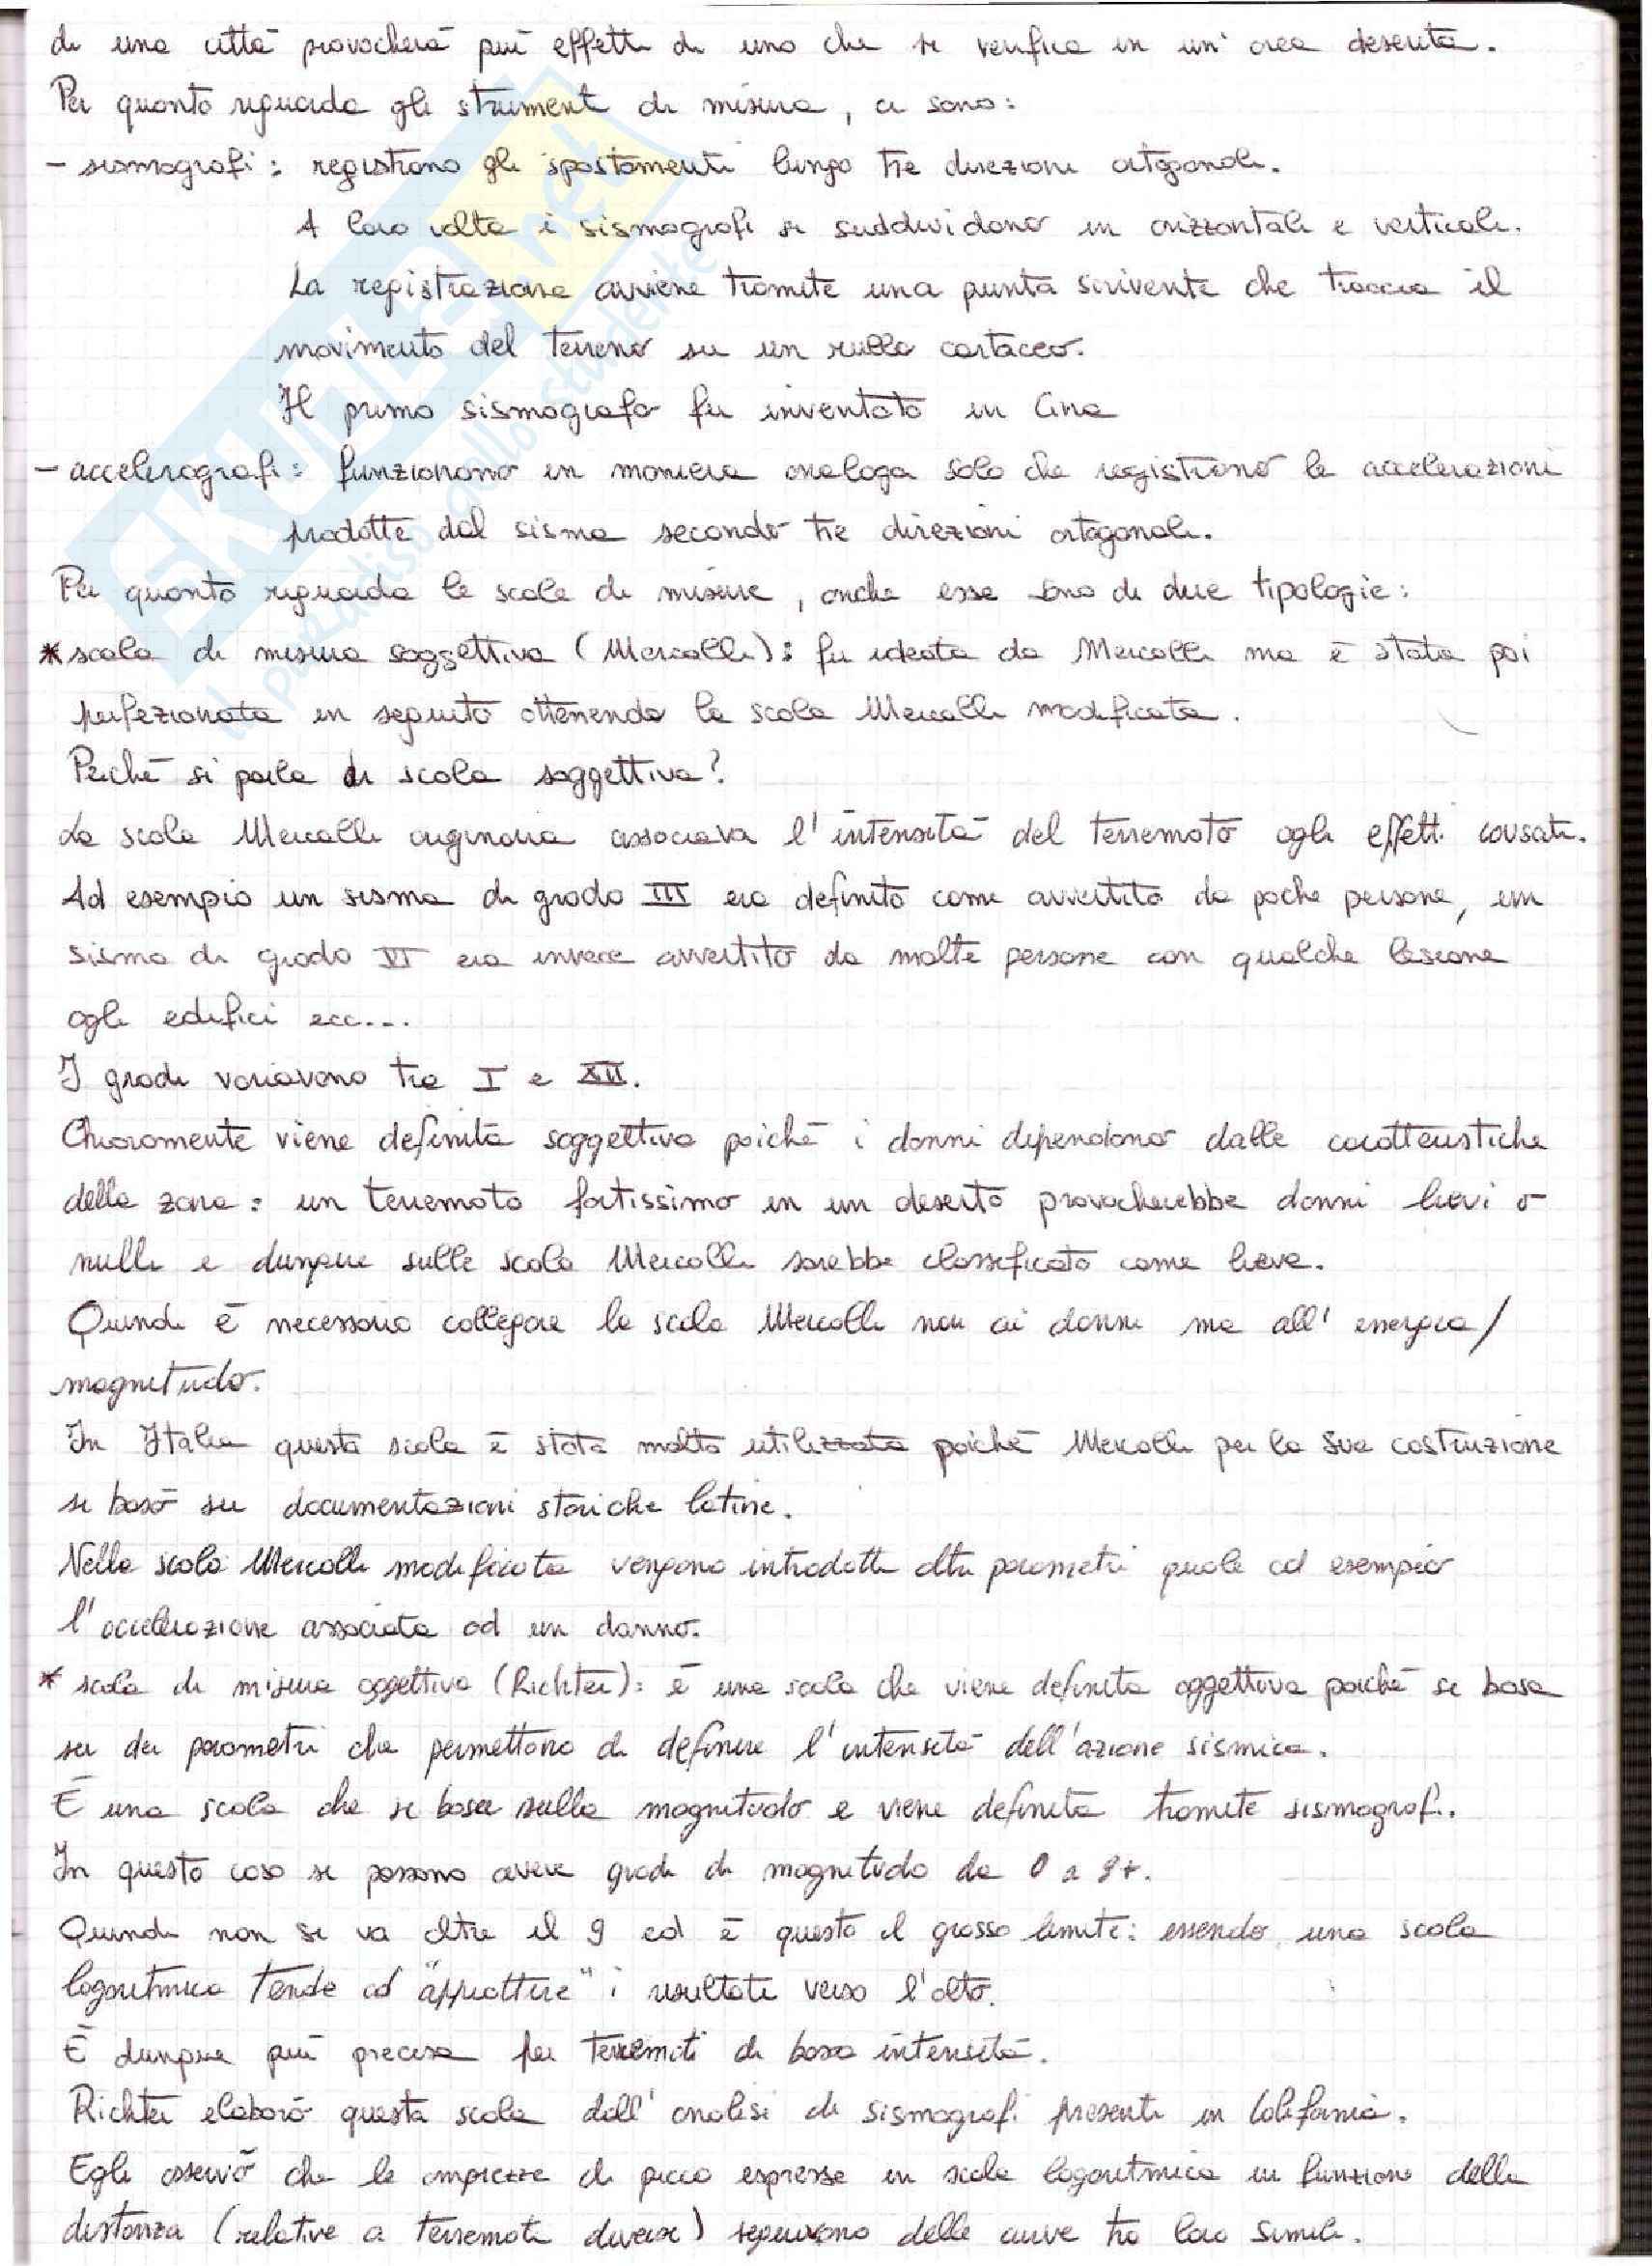 di una città provocherà più effetti di uno che si verifica in un' area deserta.
Per quanto riguarda gli strumenti di misura, ci sono:
- sismografi: registrano gli spostamenti lungo tre direzioni ortogonali.
A loro volta i sismografi si suddividono in orizzontali e verticali.
La registrazione avviene tramite una punta scrivente che traccia il
movimento del terreno su un rullo cartaceo.
Il primo sismografo fu inventato in Cina
- accelerografi: funzionano in maniera analoga solo che registrano le accelerazioni
prodotte dal sisma secondo tre direzioni ortogonali.
Per quanto riguarda le scale di misure, anche esse sono di due tipologie:
* scala di misura soggettiva (Mercalli): fu ideata da Mercalli ma è stata poi
perfezionata in seguito ottenendo la scala Mercalli modificata.
Perché si parla di scala soggettiva?
La scala Mercalli originaria associava l'intensità del terremoto agli effetti causati.
Ad esempio un sisma di grado III era definito come avvertito da poche persone, un
sisma di grado VI era invece avvertito da molte persone con qualche lesione
agli edifici ecc...
I gradi variavano tra I e XII.
Chiaramente viene definita soggettiva poiché i danni dipendono dalle caratteristiche
della zona: un terremoto fortissimo in un deserto provocherebbe danni lievi o
nulli e dunque sulla scala Mercalli sarebbe classificato come lieve.
Quindi è necessario collegare la scala Mercalli non ai danni ma all' energia/
magnitudo.
In Italia questa scala è stata molto utilizzata poiché Mercalli per la sua costruzione
si basò su documentazioni storiche latine.
Nella scala Mercalli modificata vengono introdotti altri parametri quale ad esempio
l'accelerazione associata ad un danno.
* scala di misura oggettiva (Richter): è una scala che viene definita oggettiva poiché si basa
su dei parametri che permettono di definire l'intensità dell'azione sismica.
È una scala che si basa sulla magnitudo e viene definita tramite sismografi.
In questo caso si possono avere gradi di magnitudo da 0 a 9+.
Quindi non si va oltre il 9 ed è questo il grosso limite: essendo una scala
logaritmica tende ad "appiattire" i risultati verso l'alto.
È dunque più precisa per terremoti di bassa intensità.
Richter elaborò questa scala dall' analisi di sismografi presenti in California.
Egli osservò che le ampiezze di picco espresse in scala logaritmica in funzione della
distanza (relative a terremoti diversi) seguivano delle curve tra loro simili.
SKUOLA.net
il paradiso dello studente